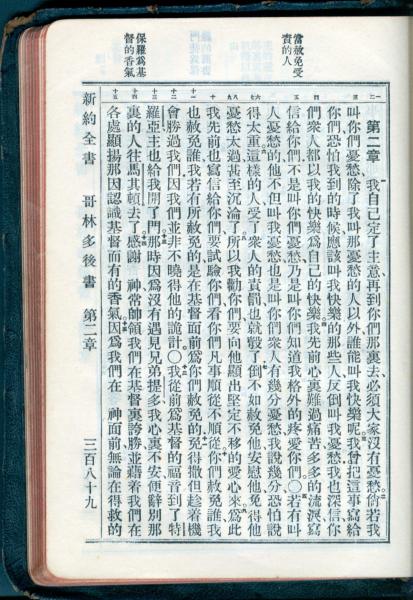 當赦免受
責的人
保羅爲基
督的香氣
第二章
我自己定了主意、再到你們那裏去、必須大家沒有憂愁、倘若我
叫你們憂愁、除了我叫那憂愁的人以外、誰能叫我快樂呢、我曾把這事寫給
你們、恐怕我到的時候、應該叫我快樂的那些人、反倒叫我憂愁、我也深信你
們衆人都以我的快樂爲自己的快樂、我先前心裏難過痛苦、多多的流淚、寫
信給你們、不是叫你們憂愁、乃是叫你們知道我格外的疼愛你們、〇若有叫
人憂愁的、他不但叫我憂愁、也是叫你們衆人有幾分憂愁、我說幾分、恐怕說
得太重、這樣的人、受了衆人的責罰也就彀了、倒不如赦免他、安慰他、免得他
憂愁太過、甚至沉淪了、所以我勸你們、要向他顯出堅定不移的愛心來、爲此
我先前也寫信給你們、要試驗你們、看你們凡事順從不順從、你們赦免誰、我
也赦免誰、我若有所赦免的、是在基督面前爲你們赦免的、免得撒但趁着機
會勝過我們、因我們並非不曉得他的詭計、〇我從前爲基督的福音到了特
羅亞、主也給我開了門、那時因爲沒有遇見兄弟提多、我心裏不安、便辭別那
裏的人往馬其頓去了、感謝　神、常帥領我們在基督裏誇勝、並藉着我們在
各處顯揚那因認識基督而有的香氣、因爲我們在　神面前、無論在得救的
新約全書　哥林多後書　第二章　三百八十九